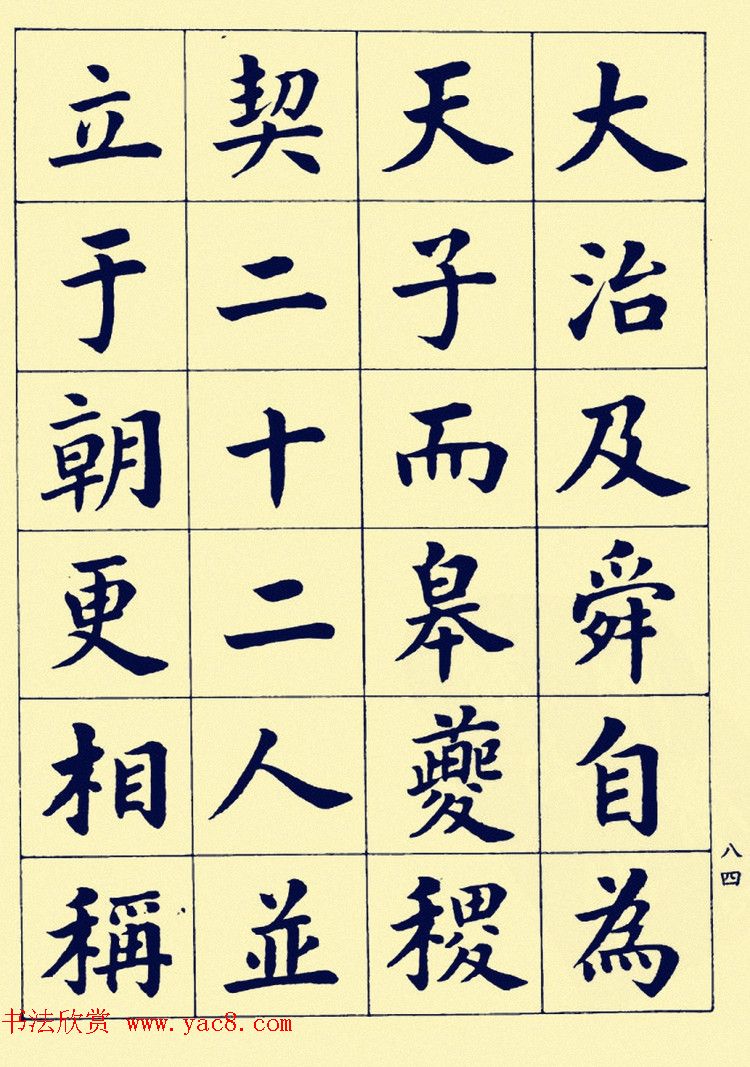 大治及舜自為
天子而皋夔稷
契二十二人並
立于朝更相稱
八四
书法欣赏 www.yac8.com